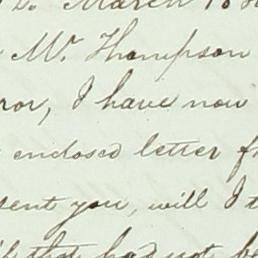 March 18
Mr. Thompson
ror, I have now
enclosed letter f
sent you, will I t
that had not be